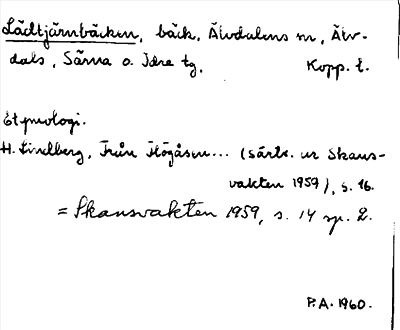 Lädtjärnbäcken, bäck, Älvdalens sn, Älv-
dals, Särna o. Idre tg, Kopp. l.
Etymologi.
H. Lindberg, Från Högåsen... (särtr. ur Skans-
vakten 1959), s. 16.
= Skansvakten 1959, s. 14 sp. 2.
P.A. 1960.